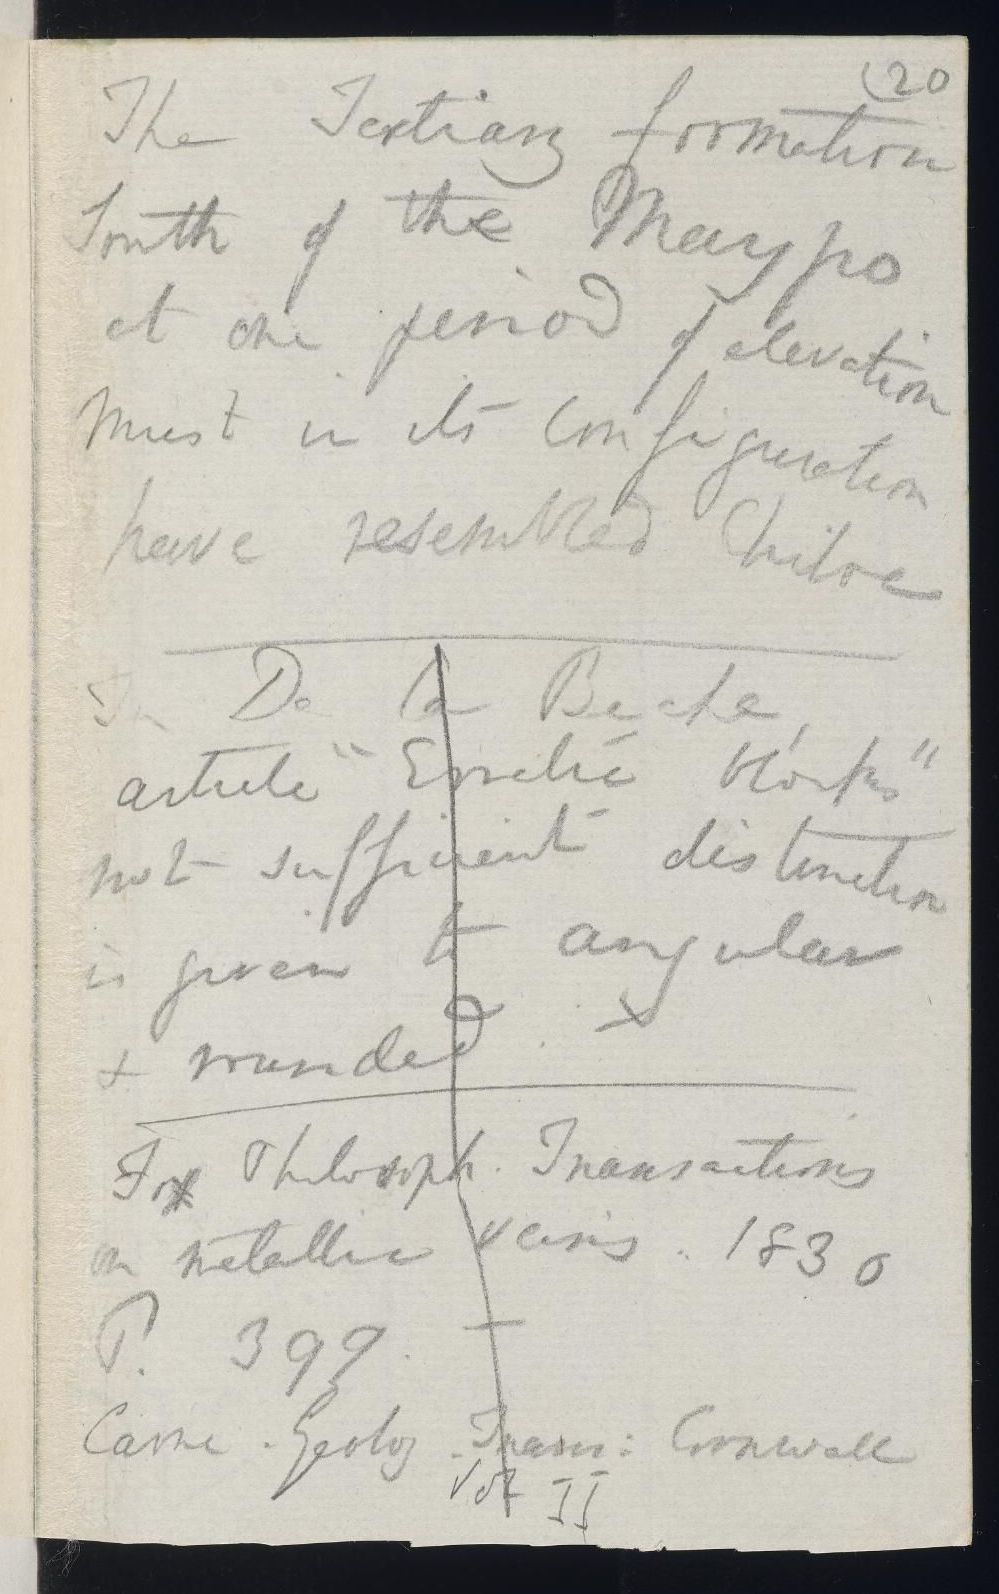 (20
The Tertiary formation
South of the Maypo
at one period of elevation
must in its configuration
have resembled Chiloe
In De La Beche,
article "Erratic blocks"
not sufficient distinction
is given to angular
& rounded. X
Fox Philosoph. Transactions
on metallic veins. 1830
P. 399. —
Carne. Geolog. Trans: Cornwall
Vol II